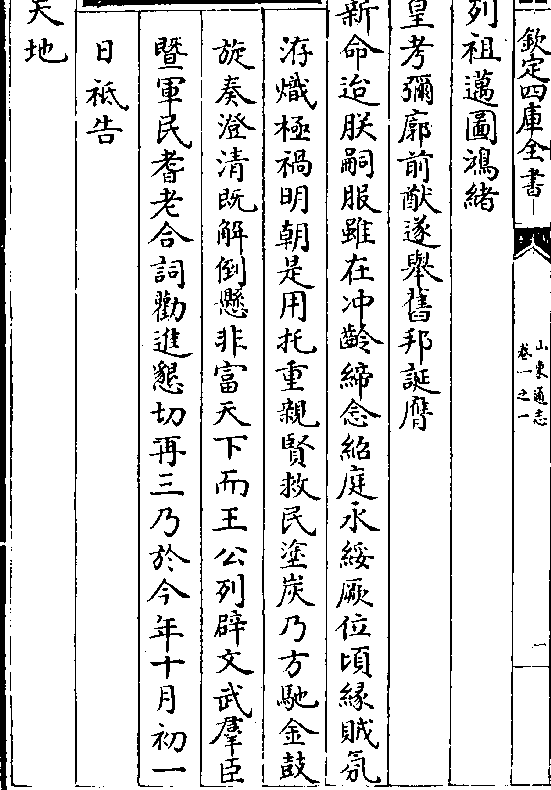 欽定四庫全書
山東通志
卷一之一
一
列祖邁圖鴻緒
皇考彌廓前猷遂舉舊邦誕膺
新命迨朕嗣服雖在冲齡締念紹庭永綏厥位頃緣賊氛
洊熾極禍明朝是用托重親賢救民塗炭乃方馳金鼓
旋奏澄清既解倒懸非富天下而王公列辟文武羣臣
暨軍民耆老合詞勸進懇切再三乃於今年十月初一
日祗告
天地